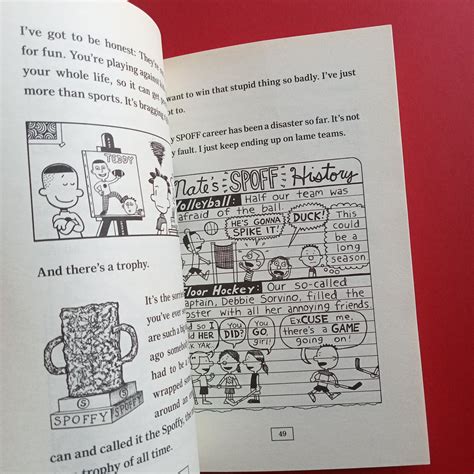 I've got to be honest: They're
for fun. You're playing against
your whole life, so it can get
more than sports. It's bragging
TEDDY
And there's a trophy.
It's the
you've ever
are such a
ago somebody
had to be a
wrapped some
around an
S
S
SPOFFY
SPOFFY
can and called it the Spoffy, the
trophy of all time.
want to win that stupid thing so badly. I've just
to.
SPOFF career has been a disaster so far. It's not
fault. I just keep ending up on lame teams.
Nate's SPOFF History
Volleyball: Half our team was
afraid of the ball.
HE'S GONNA
SPIKE IT!
DUCK!
This
could be
a long
season.
Floor Hockey: Our so-called
captain, Debbie Sorvino, filled the
roster with all her annoying friends
and so I
told HER
YAK YAK.
You
DID?
You
GO,
girl!
ExCUSE me,
there's a GAME
going on!
49